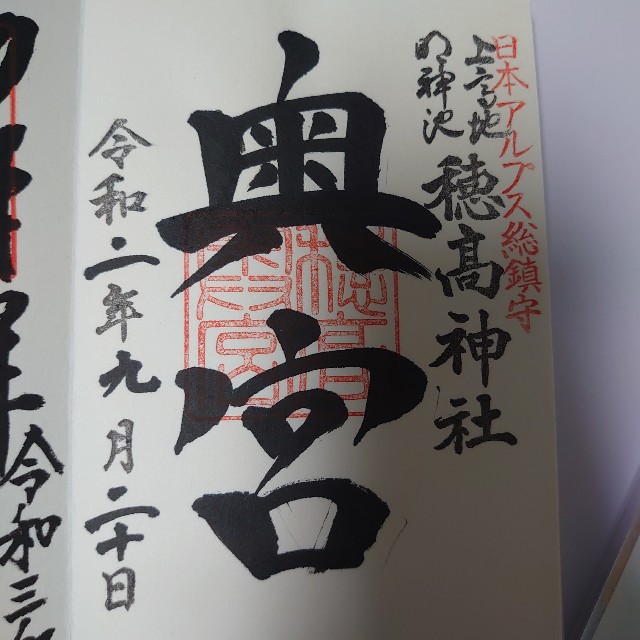 日本アルプス総鎮守
上高地
明神池
穂髙神社
奥宮
令和二年九月二十日
令和三年